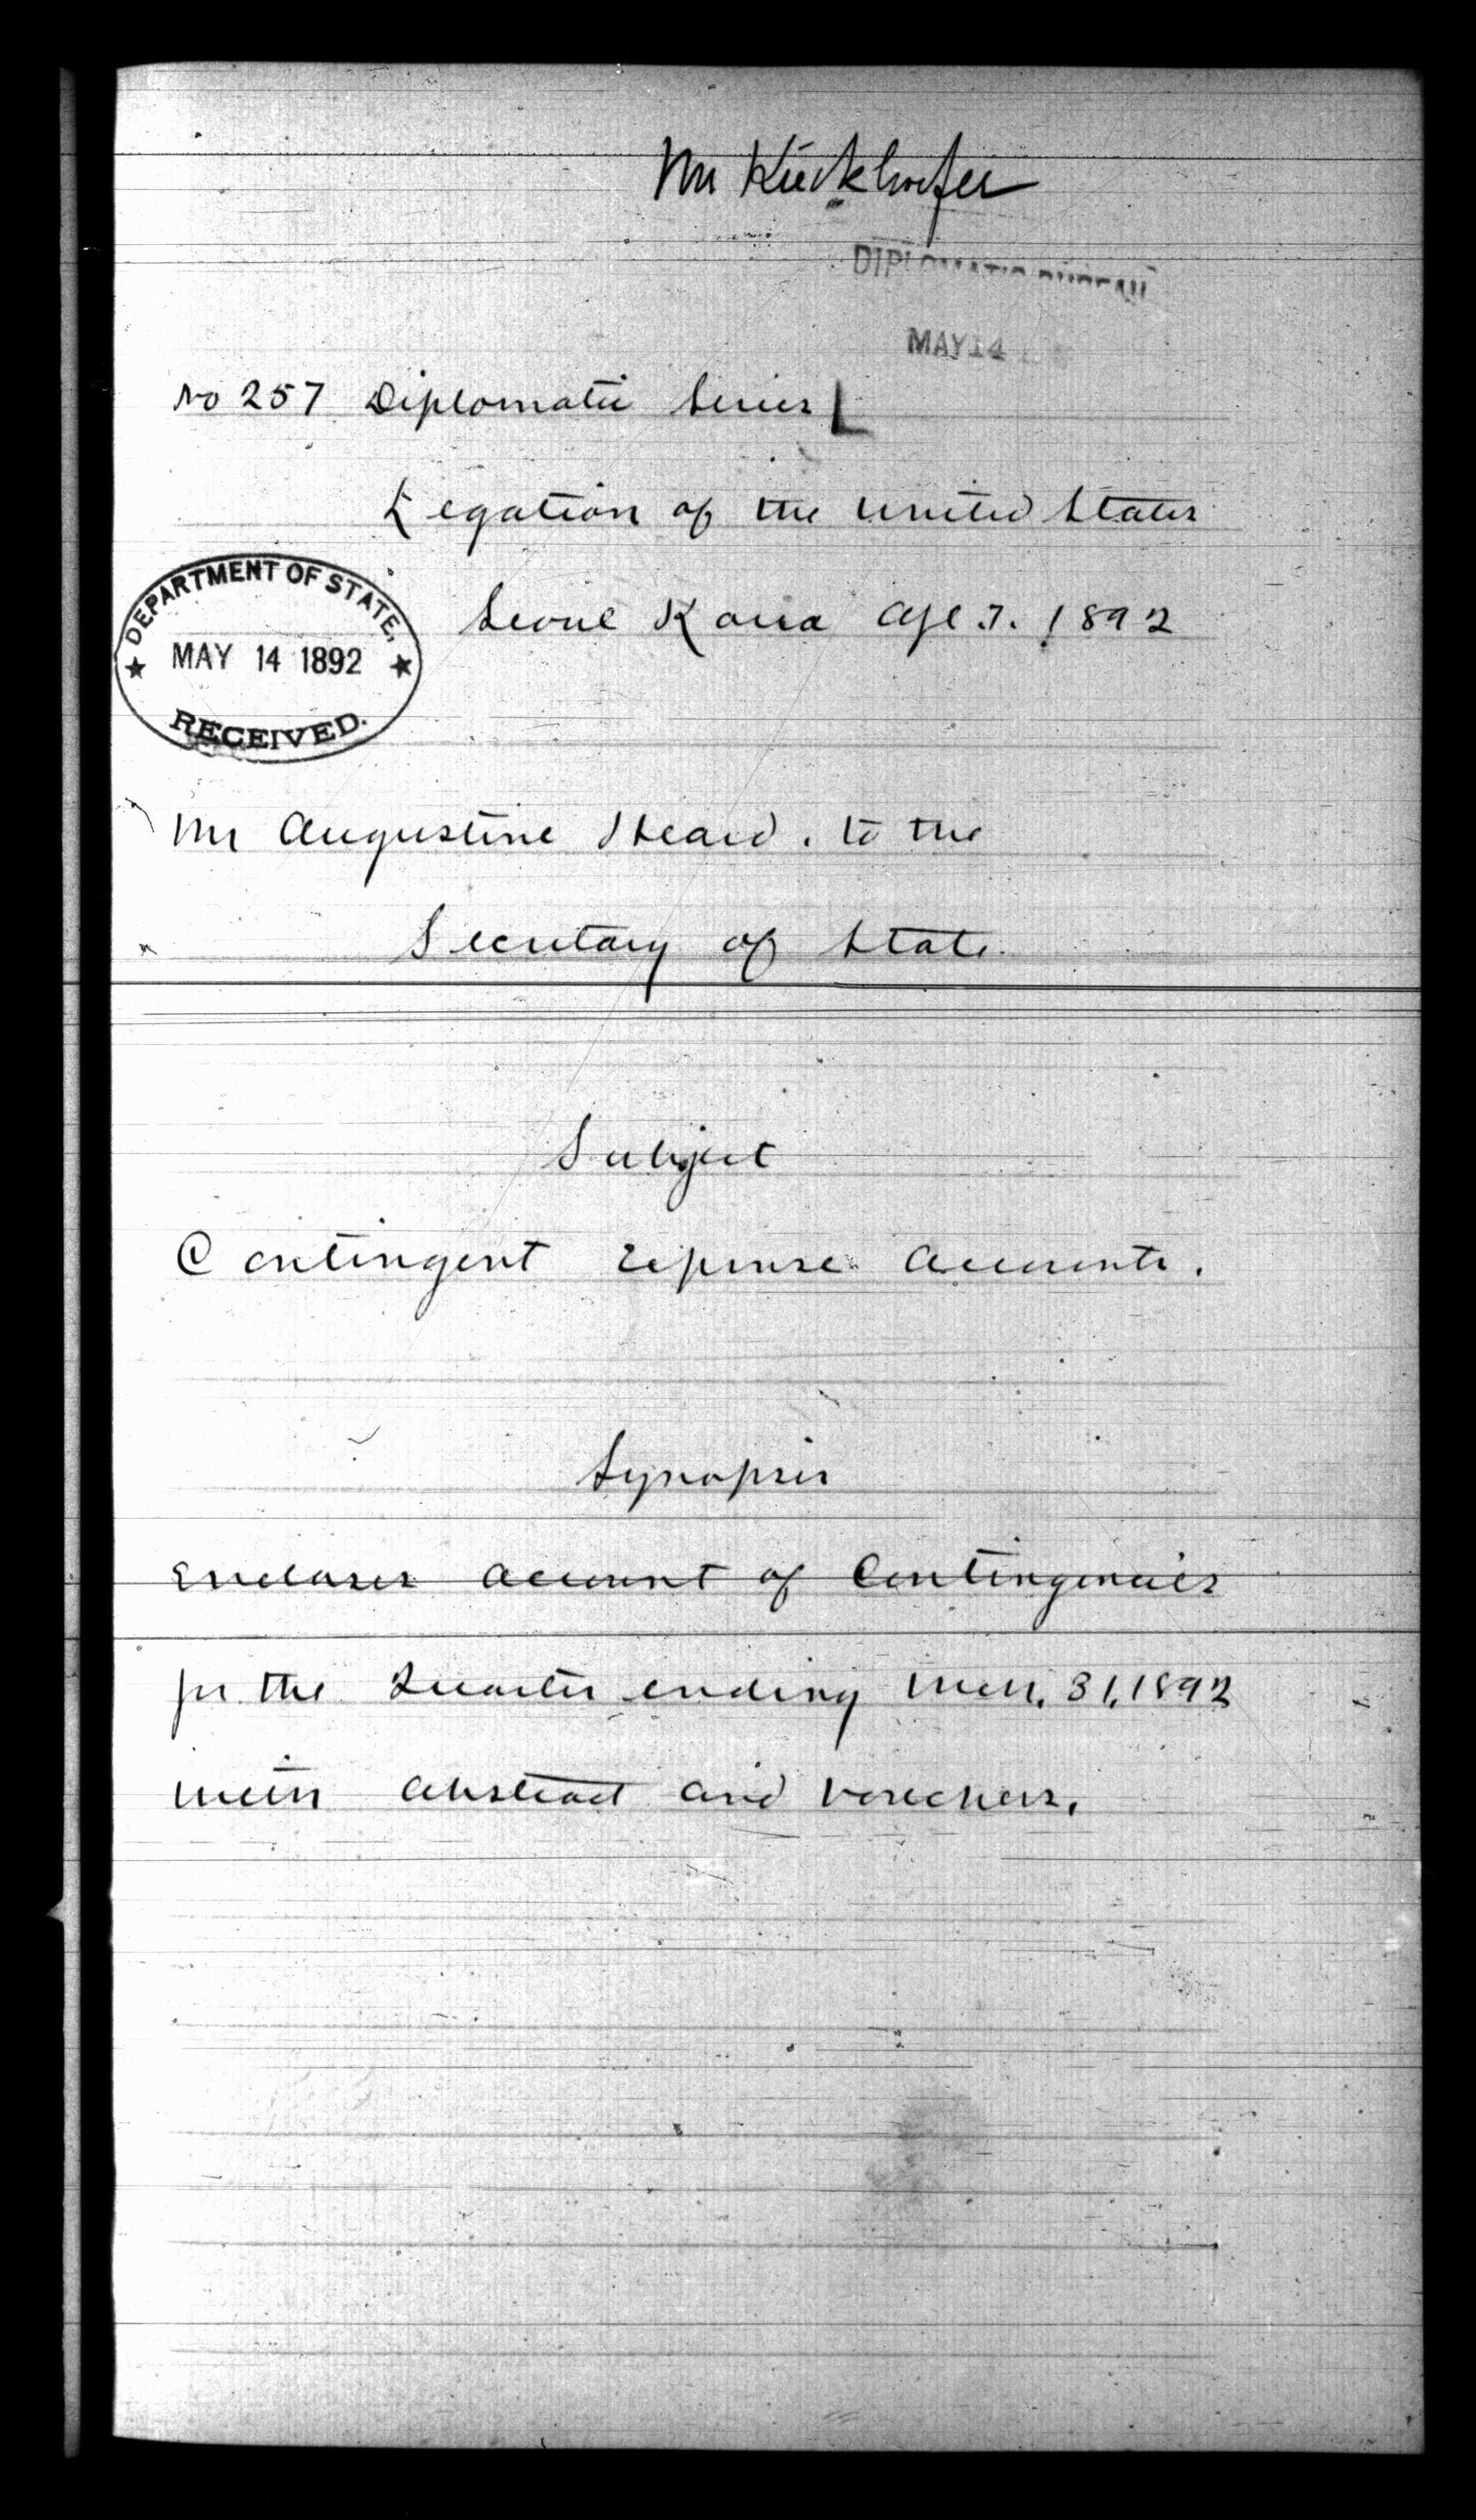 Mr Kieckhoefer
DIPLOMATIC BUREAU
MAY 14
No 257 Diplomatic Series
Legation of the United States
Seoul Korea Apl 7. 1892
DEPARTMENT OF STATE,
MAY 14 1892
RECEIVED.
Mr Augustine Heard. to the
Secretary of State.
Subject
Contingent Expense Accounts.
Synopsis
Encloses Account of Contingencies
for the Quarter ending Mch. 31, 1892
with Abstract and Vouchers.